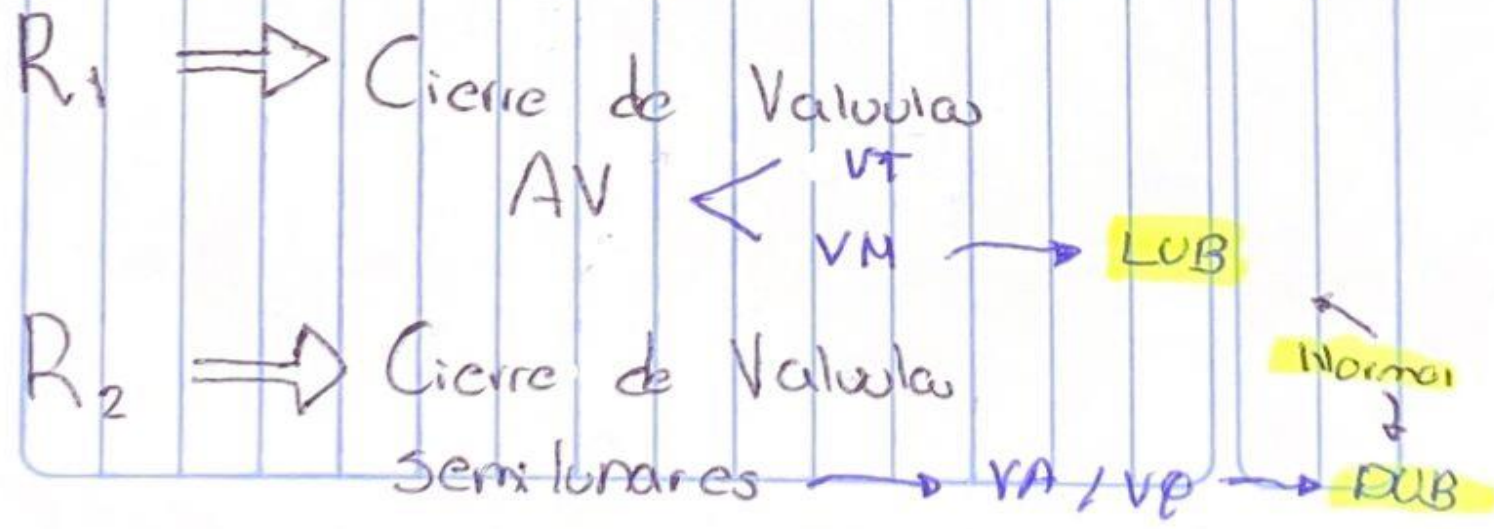 R1 ⇒ Cierre de Valvulas
AV < VT
VM → LUB
R2 ⇒ Cierre de Valvulas
Normal
semilunares → VA / VP → DUB